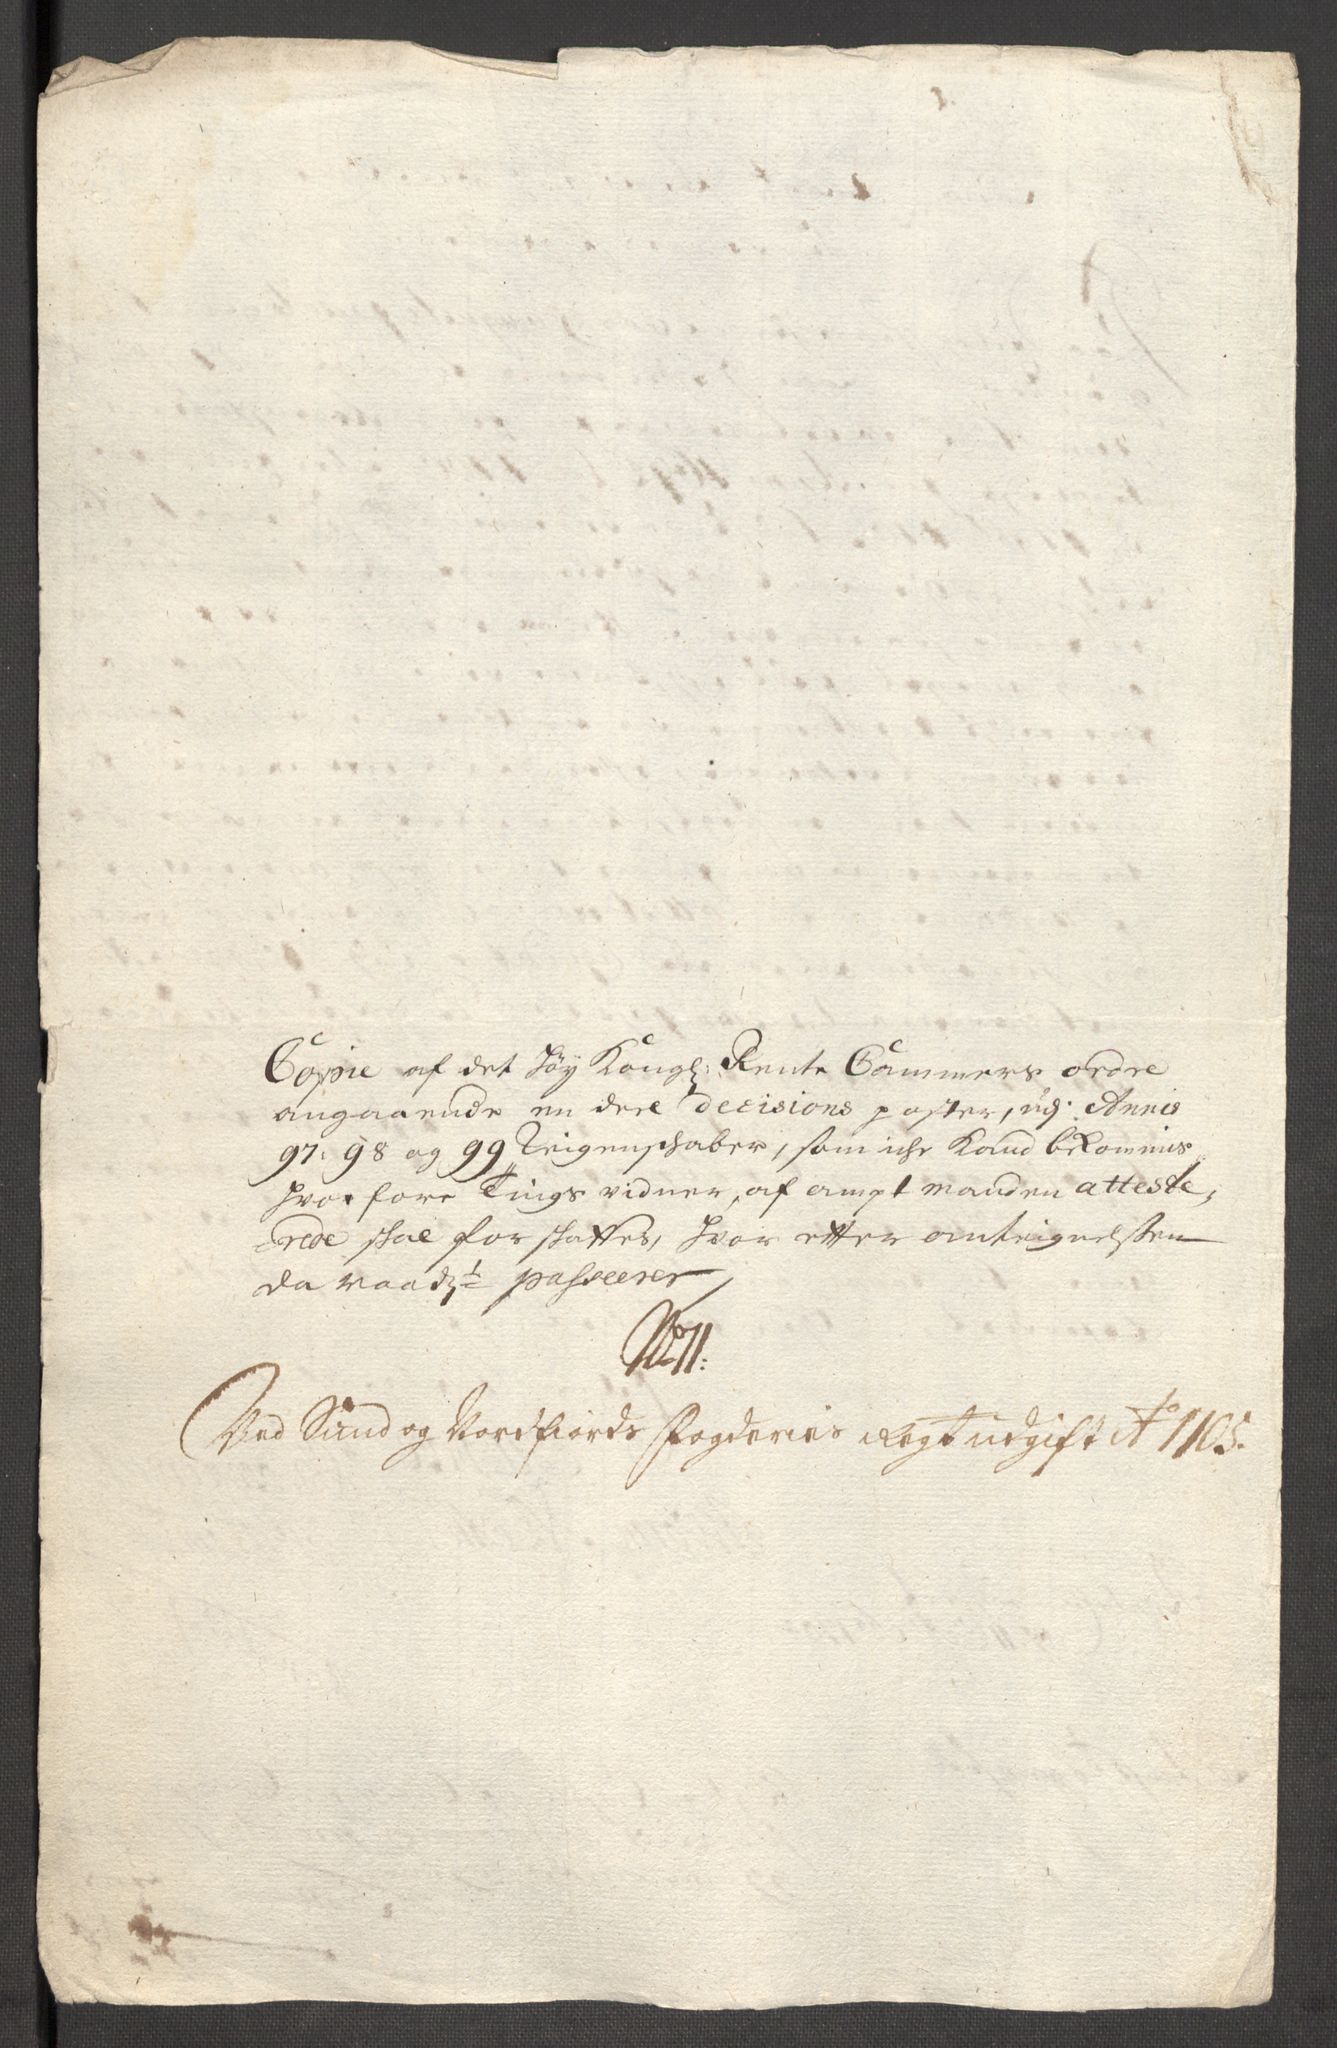 Copie af det høy Kongl: Rente Cammers ordre
angaaende en deel decisions poster, udj Annis
97: 98 og 99 Reigenskaber, som iche Kand bekommis
hvor fore Tings vidner, af ampt manden atteste,
-rede skal for skaffes, hvor efter anteignelsen
da passerer
No 11:
Ved Sund og Nordfiords Fogderies Regt udgift Ao 1705.